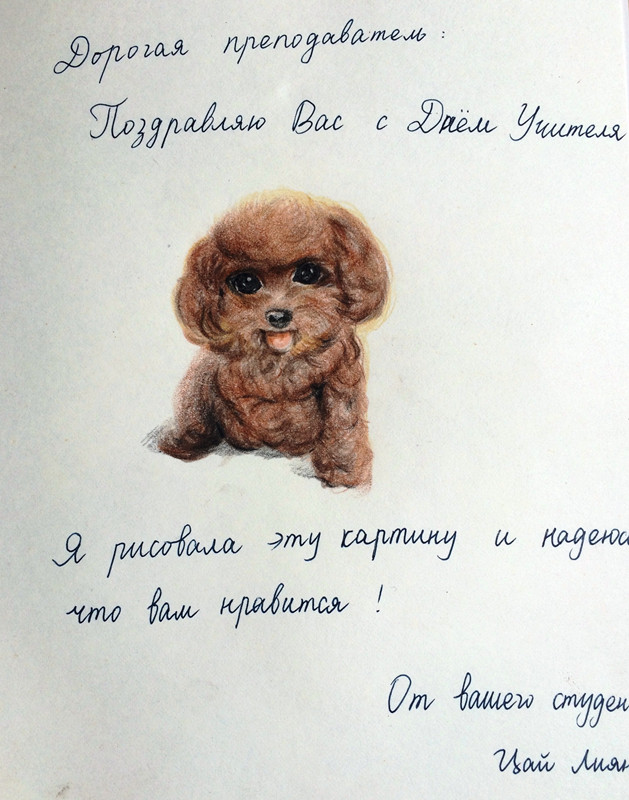 Дорогая преподаватель:
Поздравляю Вас с Днём Учителя
Я рисовала эту картину и надеюс
что вам нравится !
От вашего студен
Цай Лиян